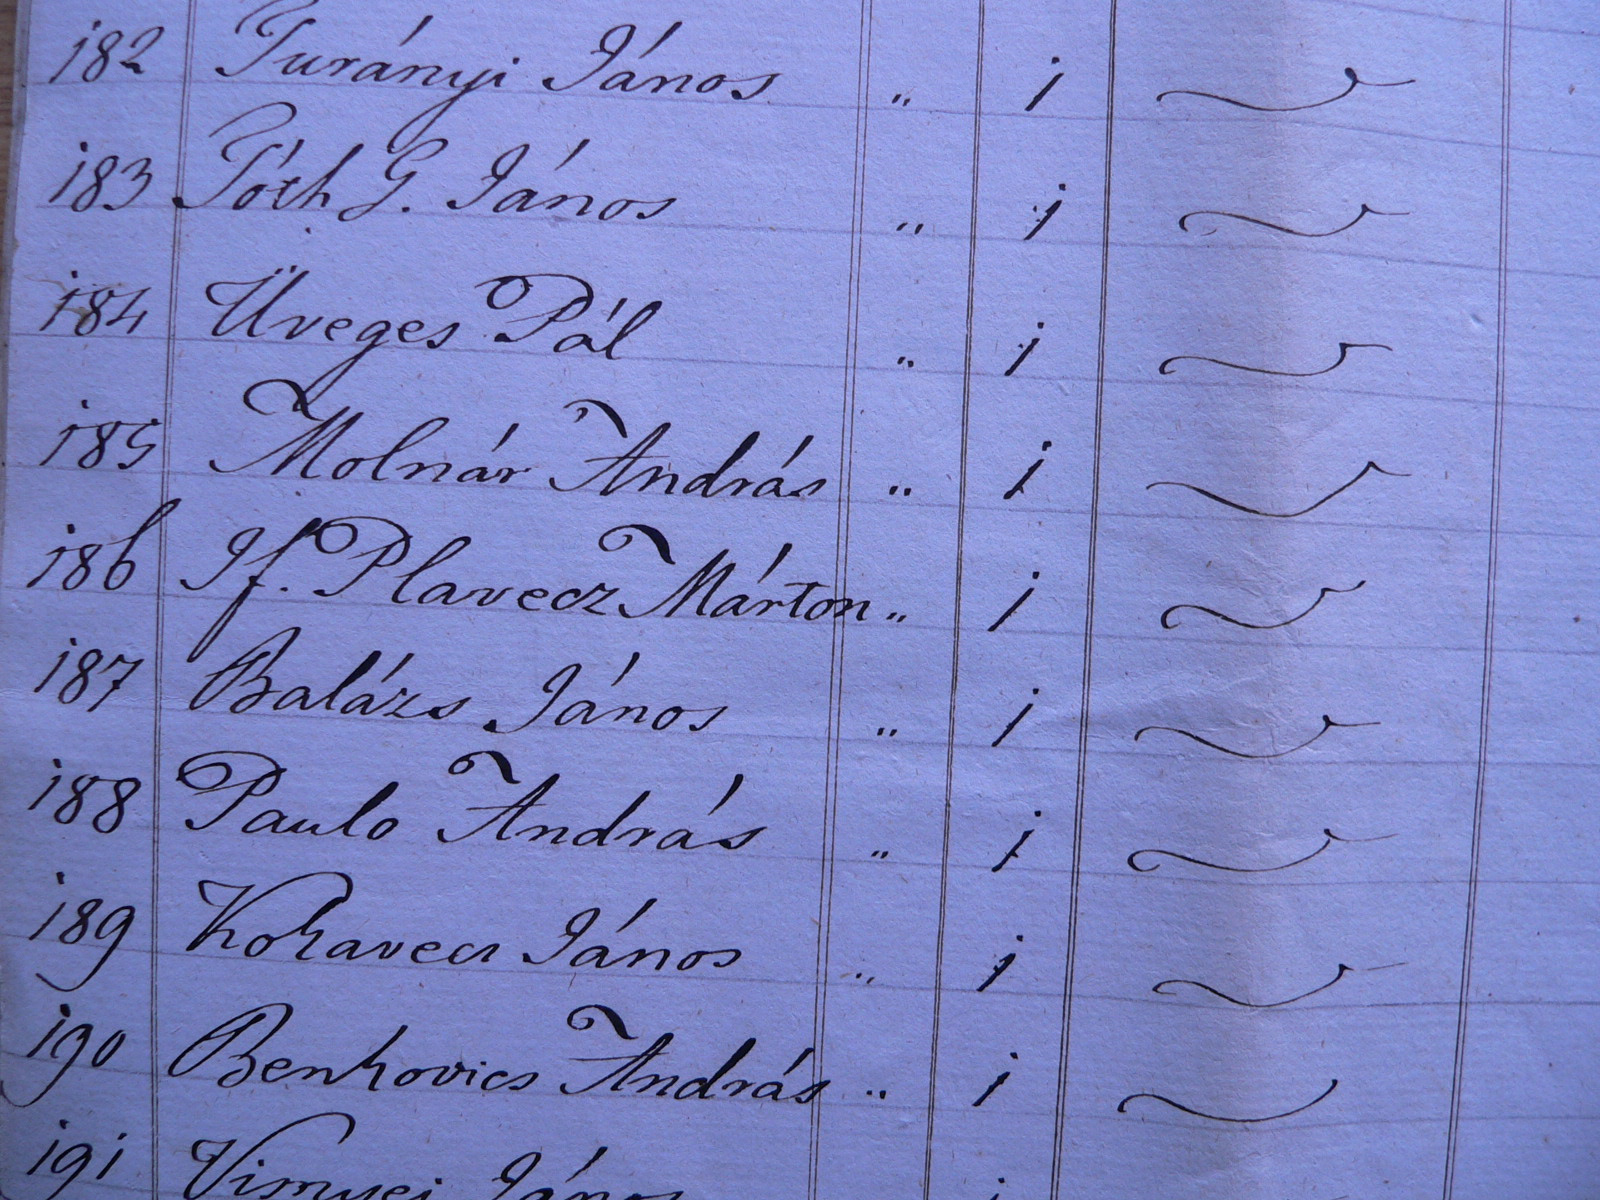 182 Turányi János " 1
183 Tóth G. János " 1
184 Üveges Pál " 1
185 Molnár András " 1
186 If. Plavecz Márton " 1
187 Balázs János " 1
188 Paulo András " 1
189 Kohavecz János " 1
190 Benkovics András " 1
191 János